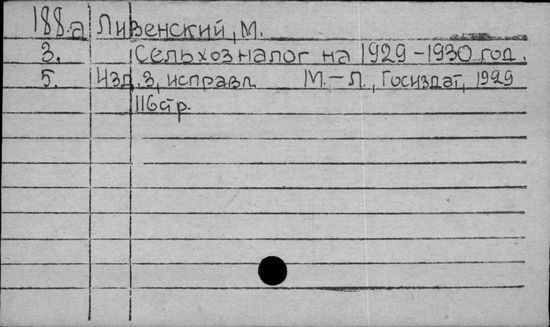 188.а Ливенский, М.
3. Сельхозналог на 1929-1930 год.
5. Изд. 3, исправл М.-Л., Госиздат, 1929
116стр.